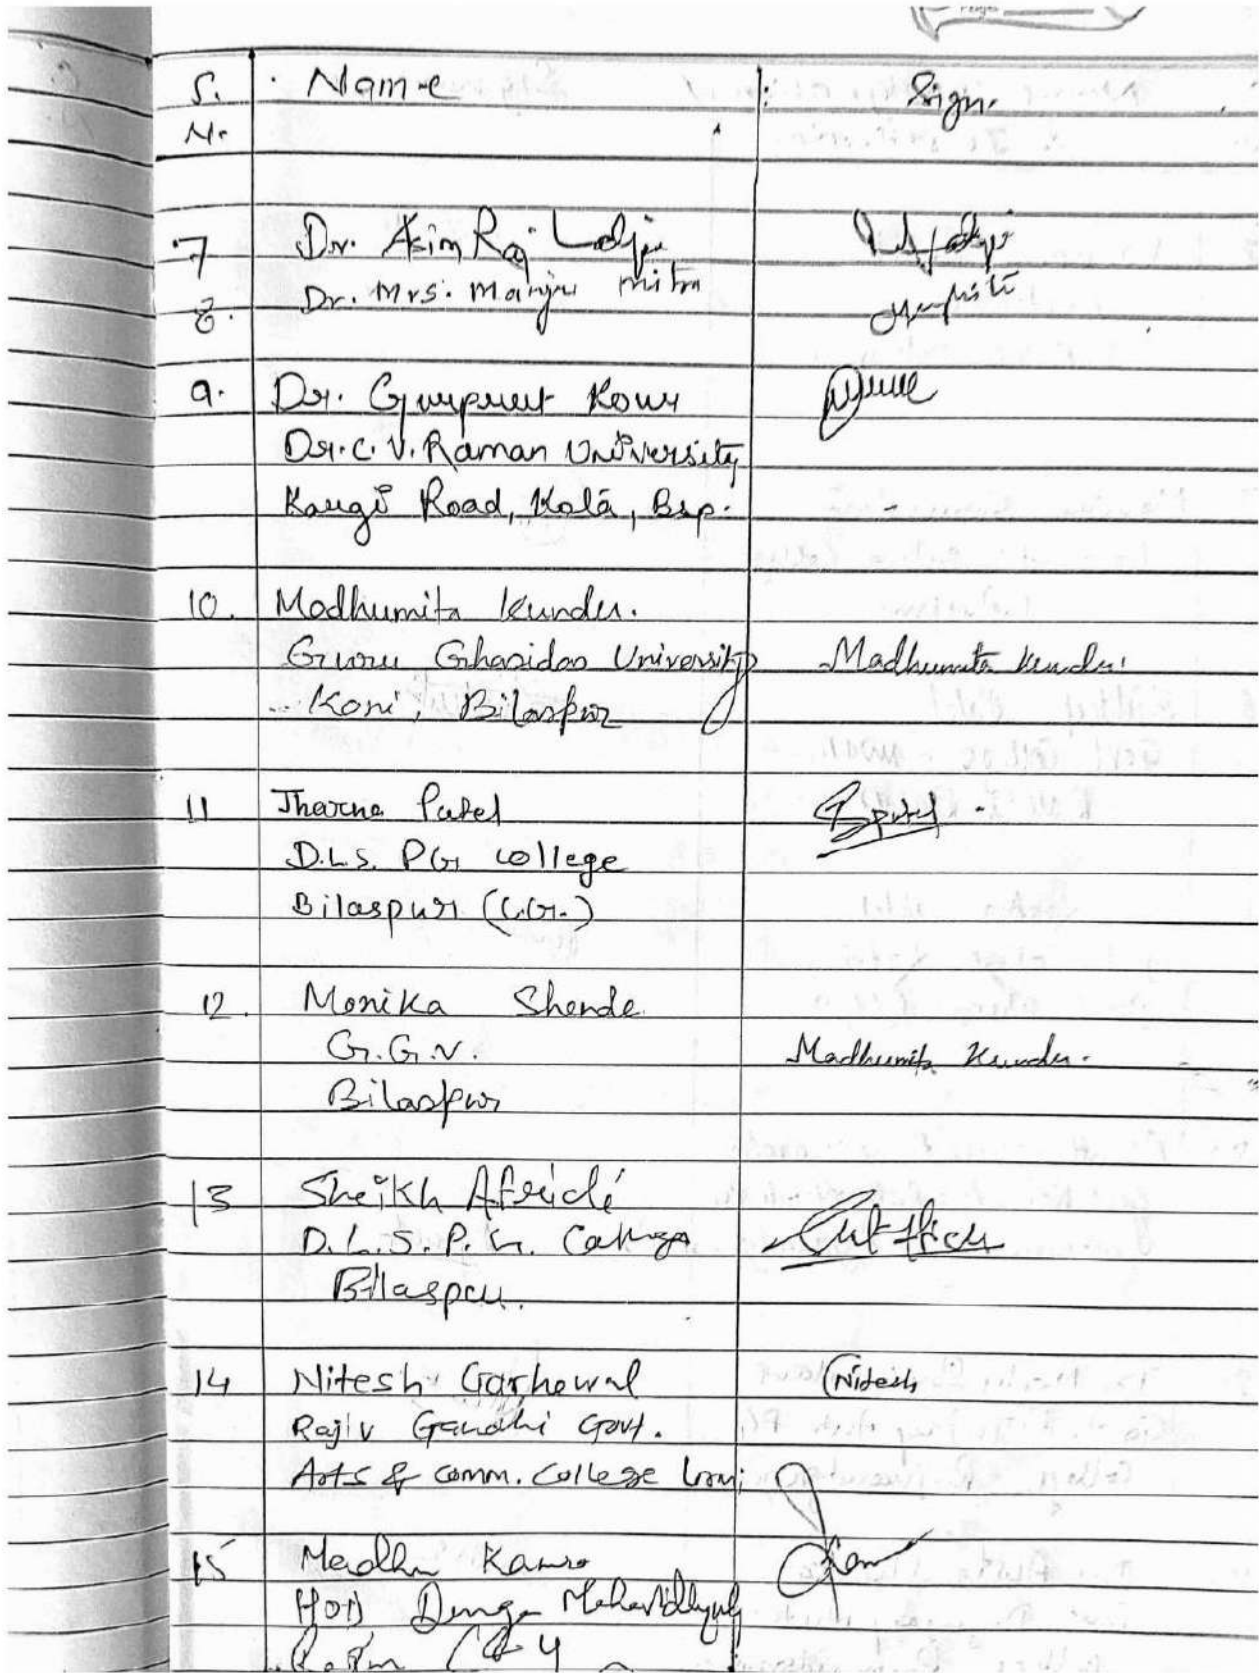 S. Name Sign.
N.
7 Dr. Asim Raj
8. Dr. Mrs. Manju Mitra
9. Dr. Gurpreet Kour
Dr. C. V. Raman University
Kargi Road, Kota, Bsp.
10. Madhumita Kundu.
Guru Ghasidas University Madhumita Kundu.
Koni, Bilaspur
11 Patel
D.L.S. PG college
Bilaspur (C.G.)
12. Monika Shende
G.G.V. Madhumita Kundu.
Bilaspur
13 Sheikh Afridi
D.L.S. P.G. College
Bilaspur.
14 Nitesh Garhewal Nitesh
Rajiv Gandhi Govt.
Arts & comm. College Lormi
15 Madhu
HOD Durga Mahavidhyaly